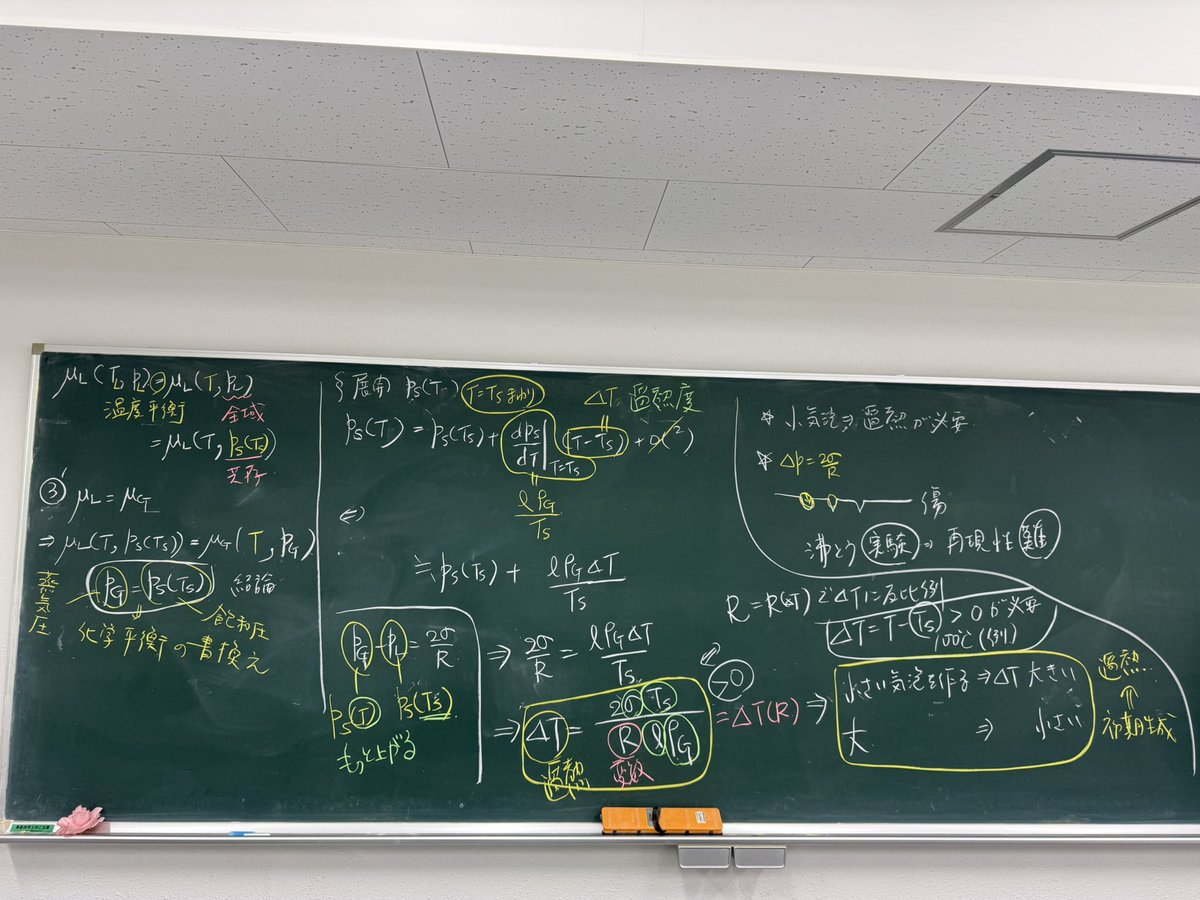 μL(TL, pL) = μL(T, pL)
温度平衡 全域
= μL(T, ps(Ts))
共存
③' μL = μG
⇒ μL(T, ps(Ts)) = μG(T, pG)
pG = ps(Ts) 結論
蒸気圧
飽和圧
化学平衡の書換え
展開 ps(T) T=Tsまわり
ΔT: 過熱度
ps(T) = ps(Ts) + dps/dT|T=Ts (T-Ts) + o(²)
lρG/Ts
⇔
≒ ps(Ts) + lρGΔT/Ts
pG - pL = 2σ/R
ps(T) ps(Ts)
もっと上がる
⇒ 2σ/R = lρGΔT/Ts
⇒ ΔT = 2σTs/RlρG = ΔT(R) ⇒
>0
過熱 変数
* 小気泡ヲ過熱が必要
* Δp = 2σ/R
傷
沸とう実験⇒再現性難
R = R(ΔT) ΔTに反比例
ΔT = T - Ts > 0が必要
100℃(例)
小さい気泡を作る ⇒ ΔT 大きい
大 ⇒ 小さい
過熱
⇑
初期生成